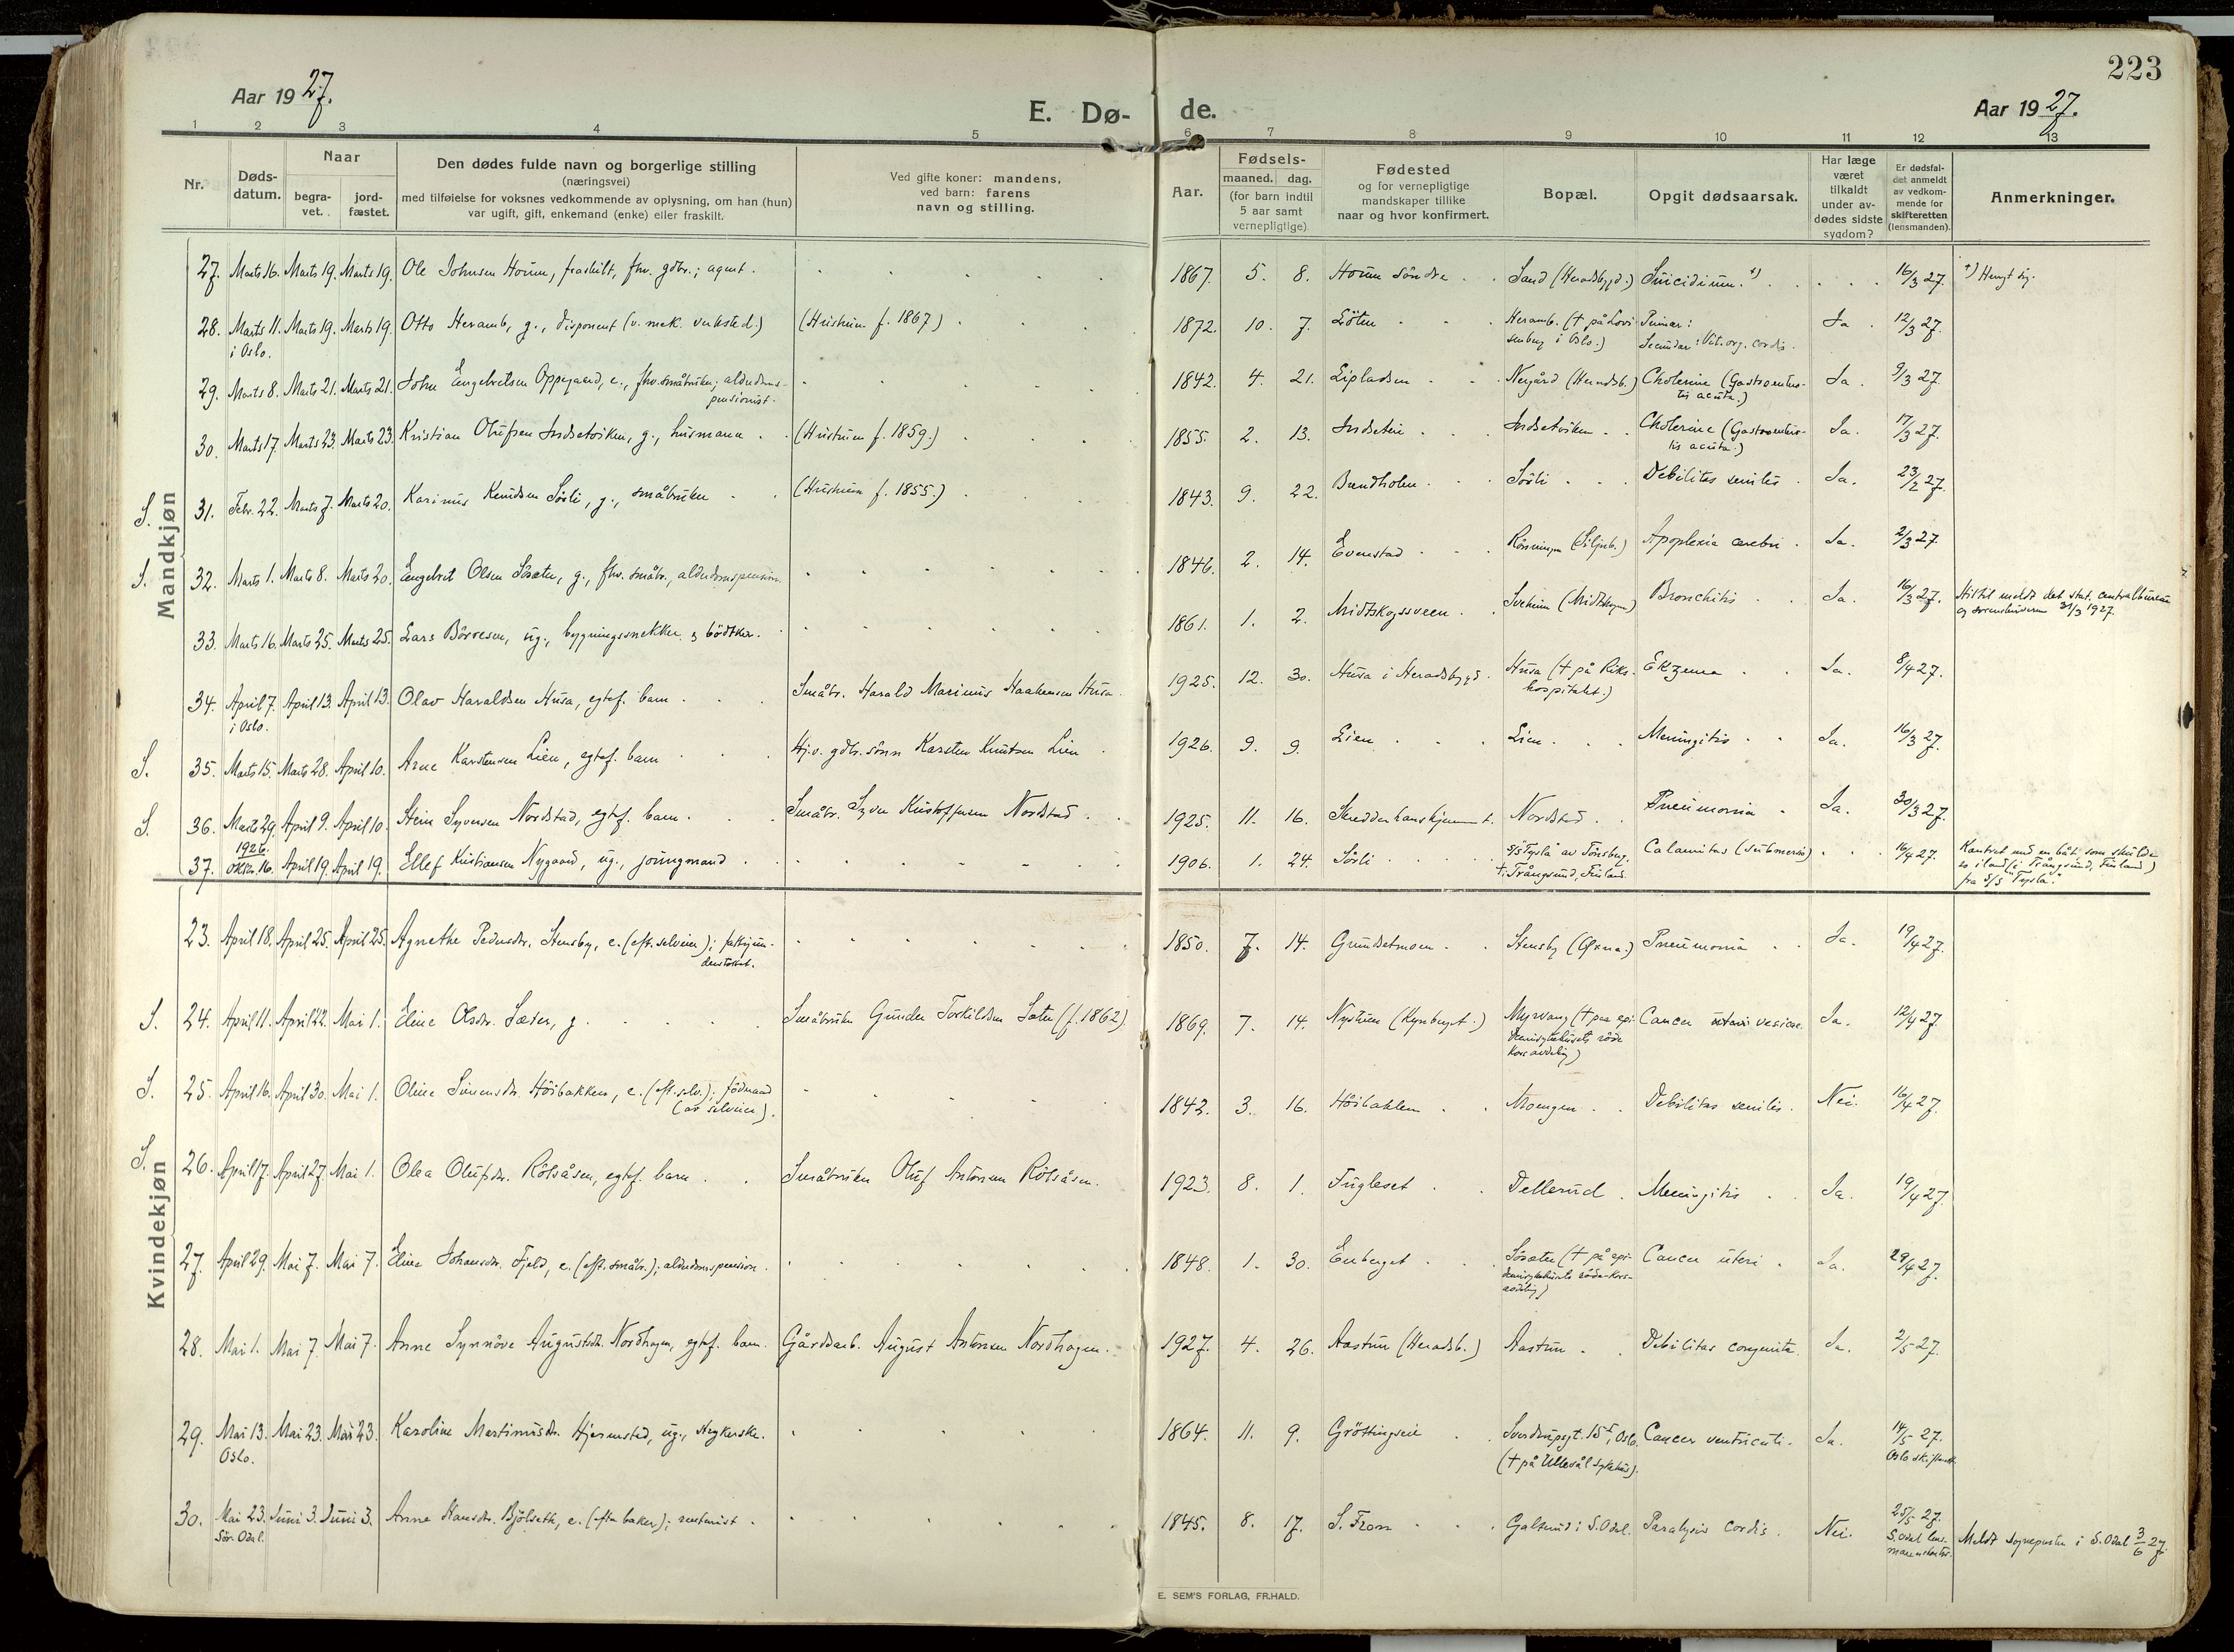 223
Aar 1927.
E. Dø- de.
Aar 1927.
1 2 3 4 5 6 7 8 9 10 11 12 13
Nr. Døds-datum. Naar begra-vet. jord-fæstet. Den dødes fulde navn og borgerlige stilling (næringsvei) med tilføielse for voksnes vedkommende av oplysning, om han (hun) var ugift, gift, enkemand (enke) eller fraskilt. Ved gifte koner: mandens, ved barn: farens navn og stilling. Aar. Fødsels- maaned. dag. (for barn indtil 5 aar samt vernepligtige) Fødested og for vernepligtige mandskaper tillike naar og hvor konfirmert. Bopæl. Opgit dødsaarsak. Har læge været tilkaldt under av-dødes sidste sygdom? Er dødsfal-det anmeldt av vedkom-mende for skifteretten (lensmanden). Anmerkninger.
Mandkjøn
27. Marts 16. Marts 19. Marts 19. Ole Johnsen Horne, fraskilt, fhv. gdbr.; agent. 1867. 5. 8. Horne söndre Sand (Heradsbygd.) Suicidium. +) 16/3 27. +) Hengt sig.
28. Marts 11. i Oslo. Marts 19. Marts 19. Otto Heramb, g., disponent (v. mek. verksted.) (Hustrun f. 1867) 1872. 10. 7. Löten Heramb. († på Lovisenberg i Oslo.) Primær: Secundær: Vit. org. cordis. Ja. 12/3 27.
29. Marts 8. Marts 21. Marts 21. John Engebretsen Oppegaard, e., fhv. småbruker; alderdoms-pensionist. 1842. 4. 21. Lipladsen Nergård (Heradsb.) Cholerine (Gastroenteri-tis acuta.) Ja. 9/3 27.
30. Marts 17. Marts 23. Marts 23. Kristian Olufsen Indsetviken, g., husmann (Hustruen f. 1859.) 1855. 2. 13. Indsetvi Indsetviken Cholerine (Gastroenteri-tis acuta.) Ja. 17/3 27.
S. 31. Febr. 22. Marts 7. Marts 20. Karinus Knudsen Sösli, g., småbruker (Hustruen f. 1855.) 1843. 9. 22. Brendholen Sösli Debilitas senilis Ja. 23/2 27.
S. 32. Marts 1. Marts 8. Marts 20. Engebret Olsen Söseter, g., fhv. småbr., alderdomspension. 1846. 2. 14. Evenstad (Siljub.) Apoplexia cerebri Ja. 2/3 27.
33. Marts 16. Marts 25. Marts 25. Lars Börresen, ug., bygningssnekker & bödtker. 1861. 1. 2. Midtskogsveen Solheim (Midtskogen) Bronchitis Ja. 16/3 27. meldt det stat. centralbureau og 31/3 1927.
34. April 7. i Oslo. April 13. April 13. Olav Haraldsen Husa, egtef. barn Småbr. Harald Marinus Haakensen Husa. 1925. 12. 30. Husa i Heradsbygd Husa († på Riks-hospitalet.) Ekzema Ja. 8/4 27.
S. 35. Marts 15. Marts 28. April 10. Arne Karstensen Lien, egtef. barn Hj.v. gdbr. sönn Karsten Knutsen Lien 1926. 9. 9. Lien Lien Meningitis Ja. 16/3 27.
S. 36. Marts 29. April 9. April 10. Stein Syversen Nordstad, egtef. barn. Småbr. Syver Kristoffersen Nordstad 1925. 11. 16. Skredderhanskjernet Nordstad Pneumonia Ja. 30/3 27.
37. 1926. Okter. 16. April 19. April 19. Ellef Kristiansen Nygaard, ug., jungmand 1906. 1. 24. Sösli S/S "Tysla" av Tönsberg. †i Trångsund, Finland. Calamitas (submersio) 16/4 27. Kantret med en båt som skulde ro iland (i Trångsund, Finland) fra S/S "Tysla".
Kvindekjøn
23. April 18. April 25. April 25. Agnethe Pedersdtr. Stensby, e. (eft. selveier); fattigun-derstöttet. 1850. 7. 14. Grundsetmoen Stensby (Öxna.) Pneumonia Ja. 19/4 27.
S. 24. April 11. April 22. Mai 1. Eline Olsdtr. Sæter, g. Småbruker Gunder Torkildsen Sæter (f. 1862) 1869. 7. 14. Nystuen (Kynberget.) Myrvang († paa epi-demisykehusets röde Kors avdeling) Cancer uteri vesicae. Ja. 12/4 27.
S. 25. April 16. April 30. Mai 1. Oline Simensdtr. Höibakken, e. (eft. selv.); föderaad (av selveier). 1842. 3. 16. Höibakken Moengen Debilitas senilis. Nei. 16/4 27.
S. 26. April 17. April 27. Mai 1. Olea Olufsdtr. Rölsåsen, egtef. barn Småbruker Oluf Antonsen Rölsåsen. 1923. 8. 1. Fugleset Dellerud Meningitis Ja. 19/4 27.
27. April 29. Mai 7. Mai 7. Eline Johansdtr. Fjeld, e. (eft. småbr.); alderdomspension. 1848. 1. 30. Enberget Söseter († på epi-demisykehusets röde-Kors-avdeling) Cancer uteri Ja. 29/4 27.
28. Mai 1. Mai 7. Mai 7. Anne Synnöve Augustsdtr. Nordhagen, egtef. barn. Gårdsarb. August Antonsen Nordhagen. 1927. 4. 26. Aastun (Heradsb.) Aastun Debilitas congenita. Ja. 2/5 27.
29. Mai 13. Oslo. Mai 23. Mai 23. Karoline Martinusdtr. Hjermstad, ug., strykerske. 1864. 11. 9. Gröttingseie Sverdrupsgt. 15 I, Oslo. († på Ullevål sykehus). Cancer ventriculi. Ja. 14/5 27. Oslo skifterett.
30. Mai 23. Sör-Odal. Juni 3. Juni 3. Anne Hansdtr. Bjölseth, e. (efter baker); rentenist. 1845. 8. 17. S. Grom Galterud i S. Odal. Paralysis cordis. Nei. 25/5 27. S. Odal lens-mannskontor. Meldt sogneprsten i S. Odal 3/6 27.
E. SEM'S FORLAG, FR.HALD.